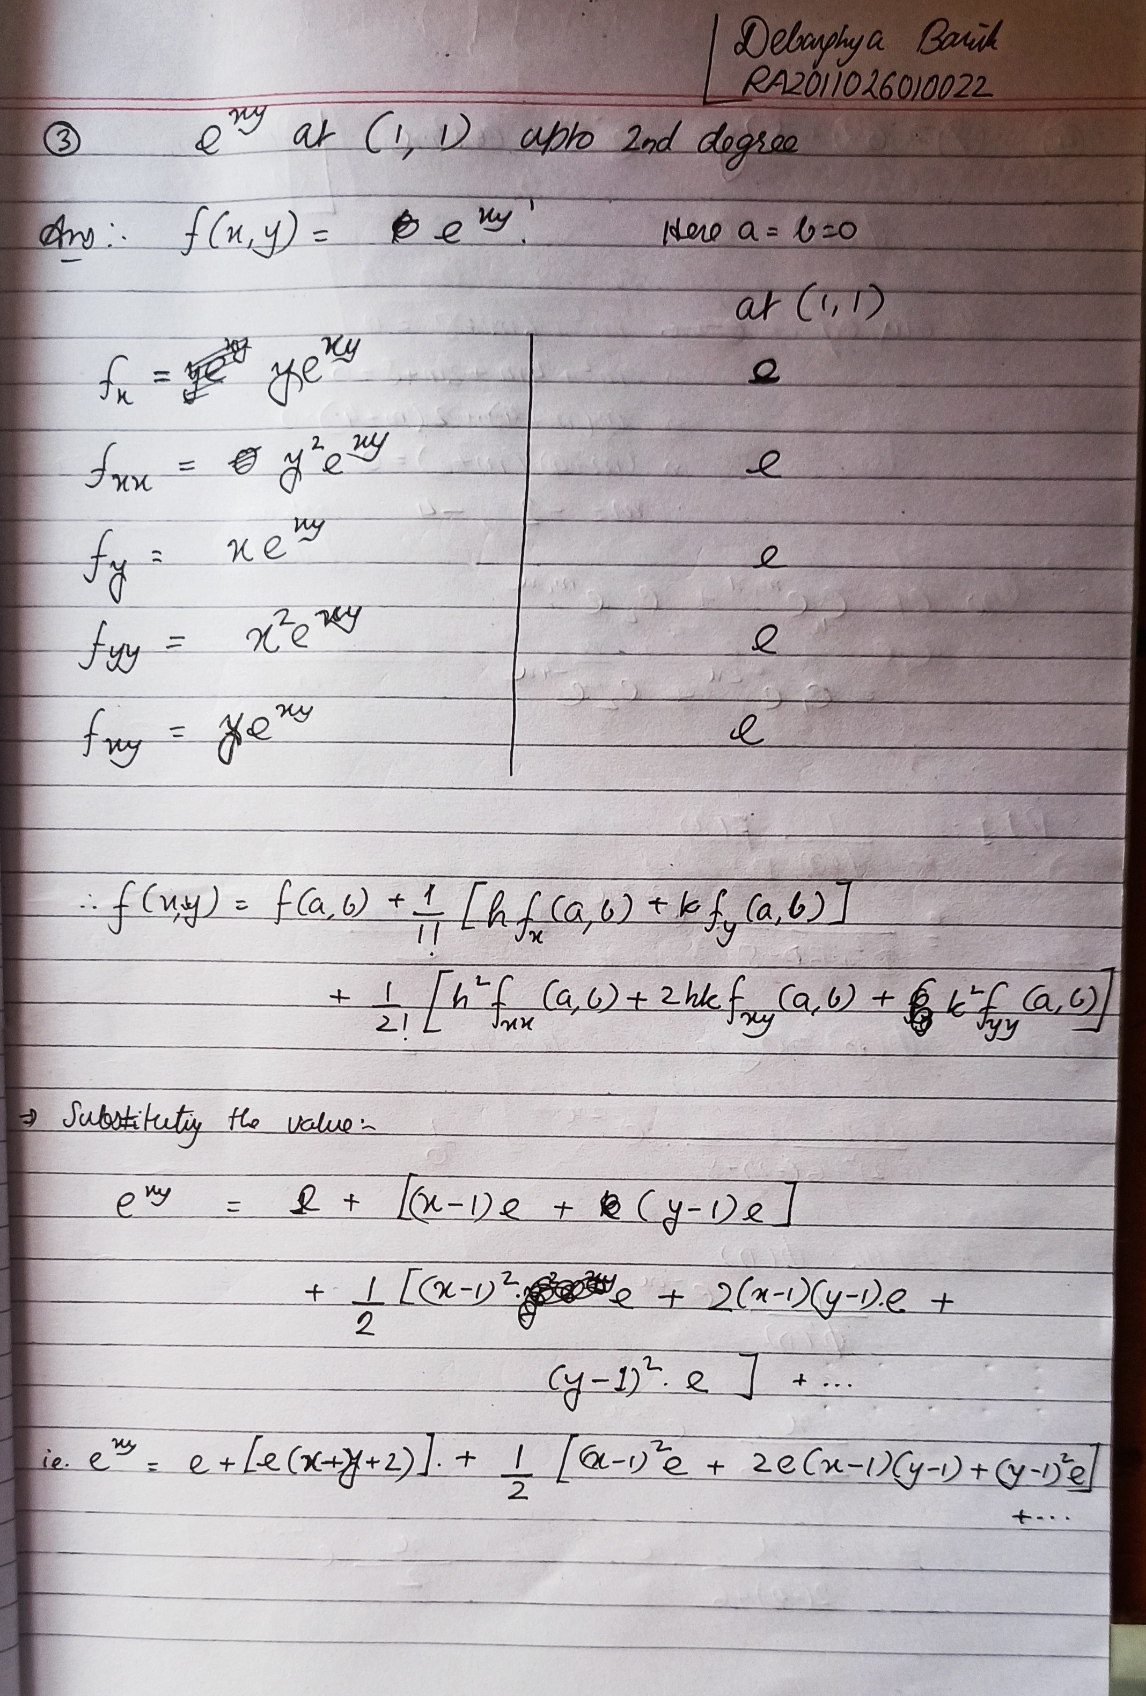 Debarghya Barik
RA2011026010022
③ e^xy at (1, 1) upto 2nd degree
Ans:. f(x,y) = e^xy. Here a = b=0
at (1, 1)
f_x = ye^xy e
f_xx = y²e^xy e
f_y = xe^xy e
f_yy = x²e^xy e
f_xy = ye^xy e
∴ f(x,y) = f(a,b) + 1/1! [h f_x (a,b) + k f_y (a,b)]
+ 1/2! [h² f_xx (a,b) + 2hk f_xy (a,b) + k² f_yy (a,b)]
⇒ Substituting the value:-
e^xy = e + [(x-1)e + (y-1)e]
+ 1/2 [(x-1)². e + 2(x-1)(y-1).e +
(y-1)². e ] + ...
ie. e^xy = e + [e(x+y+2)]. + 1/2 [(x-1)²e + 2e(x-1)(y-1) + (y-1)²e]
+....